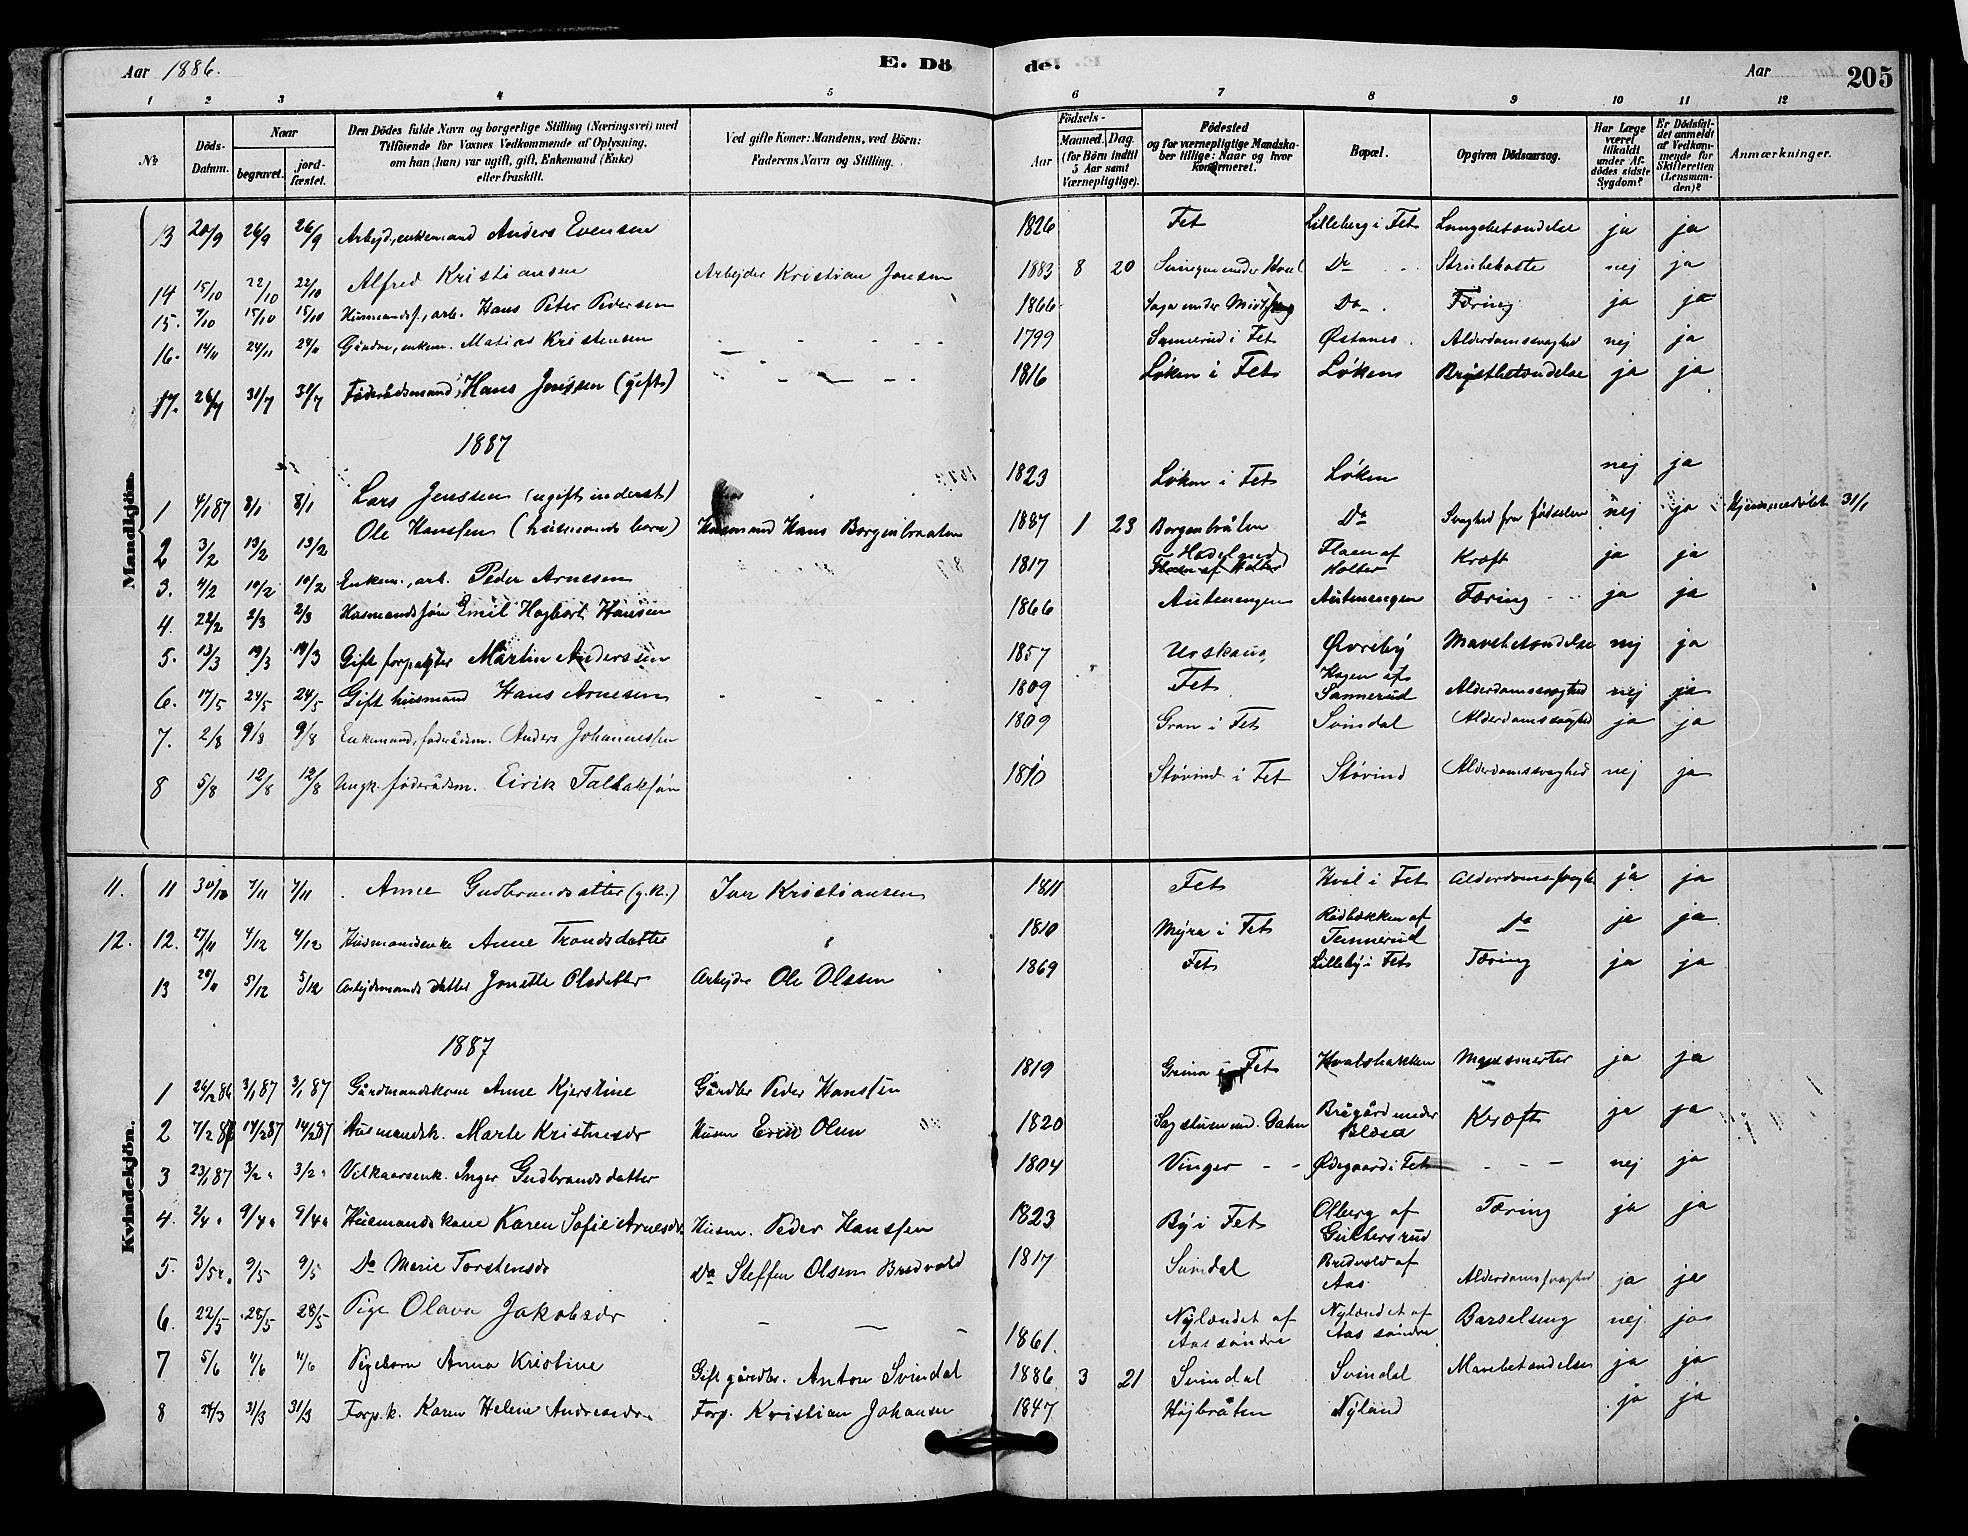 Aar 1886. E. Dö de. Aar 205
1 2 3 4 5 6 7 8 9 10 11 12
№ Döds-Datum. Naar begravet. jord-fæstet. Den Dödes fulde Navn og borgerlige Stilling (Næringsvei) med Tilföiende for Voxnes Vedkommende af Oplysning, om han (hun) var ugift, gift, Enkemand (Enke) eller fraskilt. Ved gifte Koner: Mandens, ved Börn: Faderens Navn og Stilling. Födsels- Aar Maaned. Dag. (for Börn indtil 5 Aar samt Værnepligtige). Födested og for værnepligtige Mandska-ber tillige: Naar og hvor konfirmeret. Bopæl. Opgiven Dödsaarsag. Har Læge været tilkaldt under Af-dödes sidste Sygdom? Er Dödsfal-det anmeldt af Vedkom-mende for Skifteretten (Lensman-den)? Anmærkninger.
Mandkjön.
13 20/9 26/9 26/9 Arbejd., enkemand Anders Evensen 1826 Fet Lilleberg i Fet Lungebetændelse ja ja
14 15/10 22/10 22/10 Alfred Kristiansen Arbejder Kristian Jensen 1883 8 20 Do Strubehoste nej ja
15. 7/10 15/10 15/10 Husmandsf., arb. Hans Peter Pedersen 1866 Saga under Do Tæring ja ja
16. 14/11 24/11 24/11 Gårdm., enkem. Matias Kristensen 1799 Sannerud i Fet Østanes. Alderdomssvaghed nej ja
17. 26/7 31/7 31/7 Føderådsmand, Hans Jenssen (gift) 1816 Løken i Fet Løkens Brystbetændelse ja ja
1887
1 4/1 87 8/1 8/1 Lars Jenssen (ugift inderst) 1823 Løken i Fet Løken nej ja
2 3/2 13/2 13/2 Ole Hanssen (husmands barn) Husmand Hans Borgenbraaten 1887 1 23 Borgenbråten Do Svaghed fra fødselen nej ja Hjemmedøbt 31/1
3. 4/2 10/2 10/2 Enkem., arb. Peder Arnesen 1817 Flaen af Holter Kræft ja ja
4. 22/2 2/3 2/3 Husmandssøn Emil Hagbart Hansen 1866 Autenengen Autenengen Tæring ja ja
5. 13/3 19/3 19/3 Gift forpagter Martin Anderssen 1857 Urskaug Øvreby Mavebetændelse nej ja
6. 17/5 24/5 24/5 Gift husmand Hans Arnesen 1809 Fet Hagen af Sannerud Alderdomssvaghed nej ja
7. 2/8 9/8 9/8 Enkemand, føderådsm. Anders Johannessen 1809 Gran i Fet Svindal Alderdomssvaghed ja ja
8 5/8 12/8 12/8 Ungk. føderådsm. Eirik Tallaksøn 1810 Støvind i Fet Støvind Alderdomssvaghed nej ja
Kvindekjön.
11. 11 30/10 7/11 7/11 Anne Gudbrandsdatter (g.k.) Iver Kristiansen 1811 Fet Hval i Fet Alderdomssvaghe ja ja
12. 12. 27/11 4/12 4/12 Husmandsenke Anne Trondsdatter 1810 Myra i Fet Rødbækken af Tennerud Do ja ja
13 5/12 5/12 Arbejdsmands datter Jonette Olsdatter Arbejder Ole Olssen 1869 Fet Lilleby i Fet Tæring ja ja
1887
1 26/12 86 3/1 87 3/1 87 Gårdmandskone Anne Kjerstine Gårdbr Peder Hanssen 1819 Grina i Fet Hvalsbakken ja ja
2 7/2 87 14/2 87 14/2 87 Husmandsk. Marte Kristensdr Husm Erik Olsen 1820 Kræft ja ja
3 23/1 87 3/2 " 3/2 " Vilkaarsenk. Inger Gudbrandsdatter 1804 Vinger Ødegaard i Fet nej ja
4. 2/4 " 9/4 " 9/4 " Husmandskone Karen Sofie Arnesdr Husm. Peder Hanssen 1823 By i Fet Olberg af Tæring ja ja
5. 3/5 9/5 9/5 Do Marie Torstensdr Do Steffen Olsen Bredvold 1817 Svindal Bredvold af Aas Alderdomssvaghed ja ja
6. 22/5 28/5 28/5 Pige Olava Jakobsdr 1861. Nylændet af Aas søndre Nylændet af Aas søndre Barselseng nej ja
7 5/6 11/6 11/6 Pigebarn Anna Kristine Gift gårdbr. Anton Svindal 1886 3 21 Svindal Svindal Mavebetændelse ja ja
8 24/3 31/3 31/3 Forp.k. Karen Helene Andreasdr. Forp. Kristian Johansen 1847 Højbråten Nyland ja ja